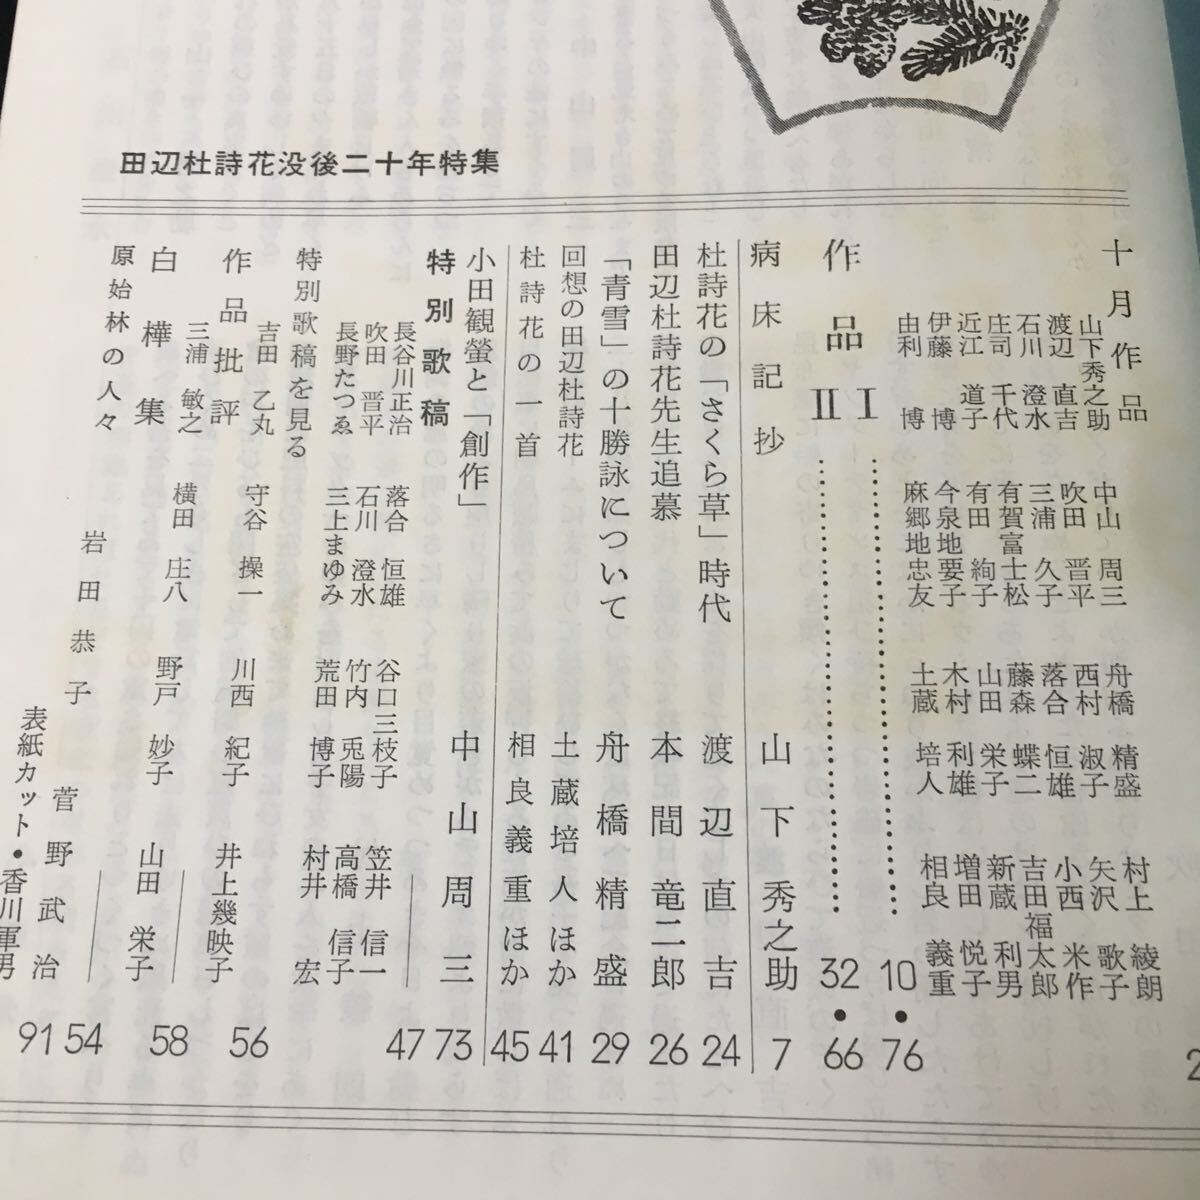 田辺杜詩花没後二十年特集
十月作品
山下秀之助 中山周三 舟橋精盛 村上綾朗
渡辺直吉 吹田晋平 西村淑子 矢沢歌子
石川澄水 三浦久子 落合恒雄 小西米作
庄司千代 有賀富士松 藤森蝶二 吉田福太郎
近江道子 有田絢子 山田栄子 新蔵利男
伊藤博 今泉地要子 木村利雄 増田悦子
由利博 麻郷地忠友 土蔵培人 相良義重
2
作品 Ⅰ……………………10・76
Ⅱ……………………32・66
病床記抄 山下秀之助 7
杜詩花の「さくら草」時代 渡辺直吉 24
田辺杜詩花先生追慕 本間竜二郎 26
「青雪」の十勝詠について 舟橋精盛 29
回想の田辺杜詩花 土蔵培人ほか 41
杜詩花の一首 相良義重ほか 45
小田観螢と「創作」 中山周三 73
特別歌稿 47
長谷川正治 落合恒雄 谷口三枝子 笠井信一
吹田晋平 石川澄水 竹内兎陽 高橋信子
長野たつゑ 三上まゆみ 荒田博子 村井宏
特別歌稿を見る
吉田乙丸 守谷操一 川西紀子 井上幾映子 56
作品批評
三浦敏之 横田庄八 野戸妙子 山田栄子 58
白樺集 54
原始林の人々 岩田恭子 菅野武治 91
表紙カット・香川軍男